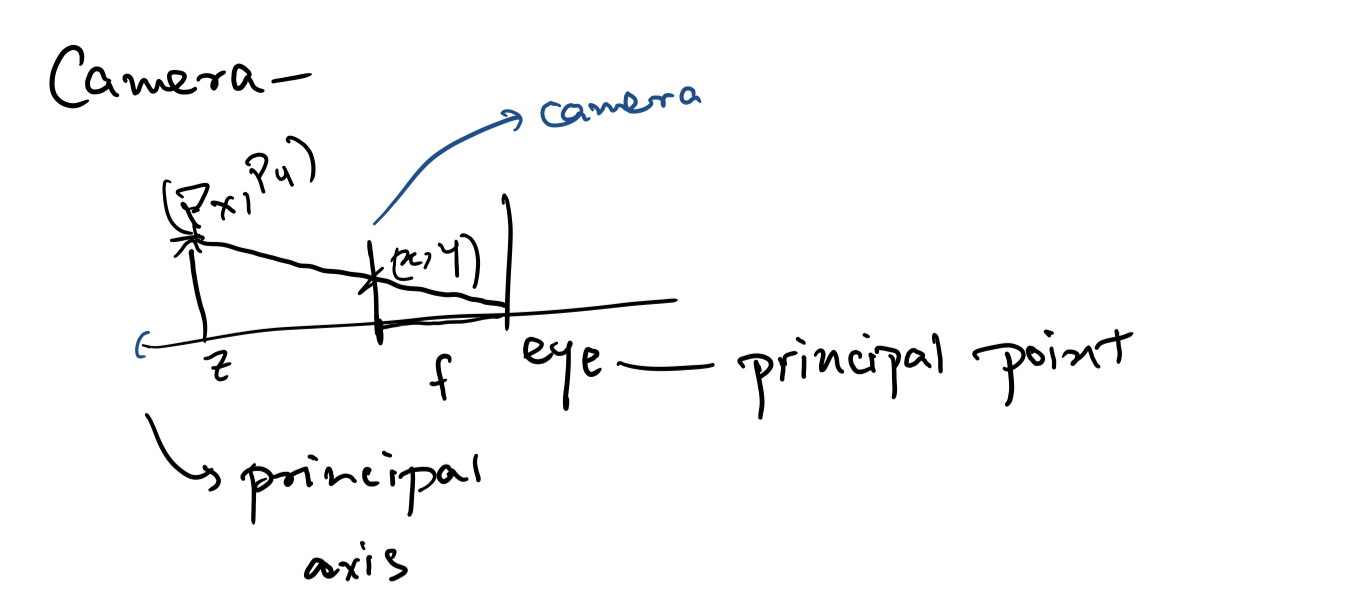 Camera —
camera
(Px, Py)
(x, y)
z
f
eye — principal point
principal
axis